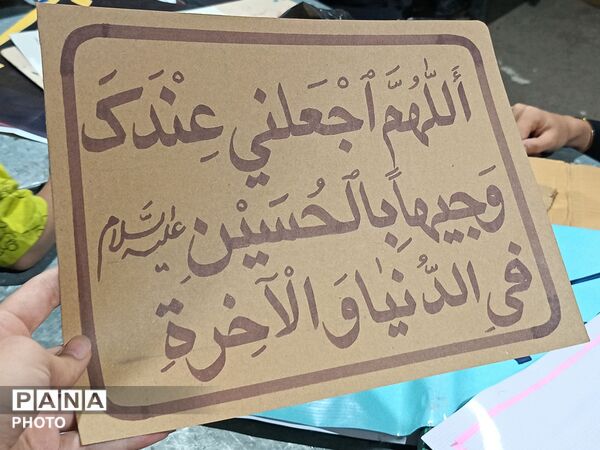 أَللّٰهُمَّ ٱجْعَلني عِنْدَکَ
وَجيهاً بِالْحُسَيْنِ عليه‌السَّلام
فيِ الدُّنيٰا وَ الْآخِرةِ
PANA
PHOTO